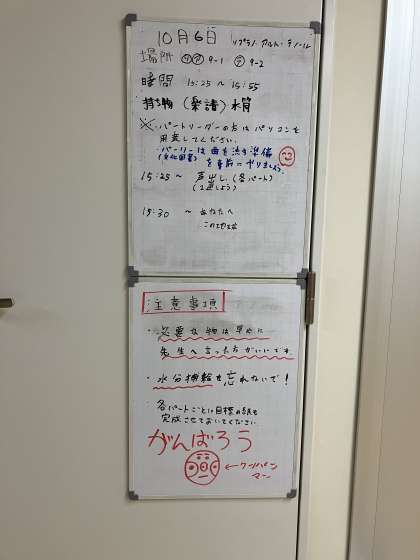 10月6日 ソプラノ・アルト・テノール
場所 ソア 9-1 テ 9-2
時間 15:25〜15:55
持ち物 (楽譜) 水筒
※・パートリーダーの方はパソコンを
用意してください。
・パーリーは曲を流す準備
(文化図書) を事前にやりましょう。
15:25〜 声出し(各パート)
(1通しよう)
15:30 〜 あなたへ
この地球
注意事項
・必要な物は早めに
先生へ言った方がいいです。
・水分補給を忘れないで!
各パートごとに目標の紙を
完成させておいてください
がんばろう
←クリパン
マン